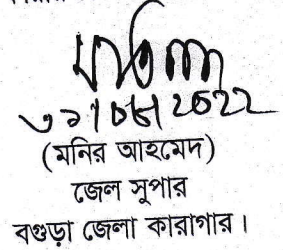 ৩১/০৮/2022
(মনির আহমেদ)
জেল সুপার
বগুড়া জেলা কারাগার।